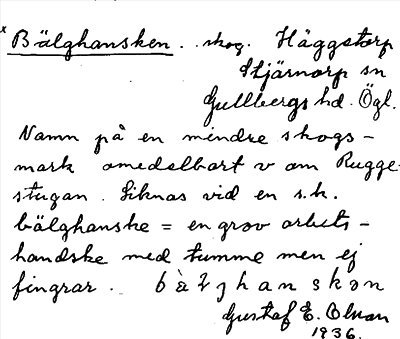 x Bälghansken . skog. Häggstorp
Stjärnorp sn
Gullbergs hd. Ögl.
Namn på en mindre skogs-
mark omedelbart v om Rugge-
stugan. Liknas vid en s.k.
bälghanske = en grov arbets-
handske med tumme men ej
fingrar. bàlghanskon
Gustaf E. Olsson
1936.